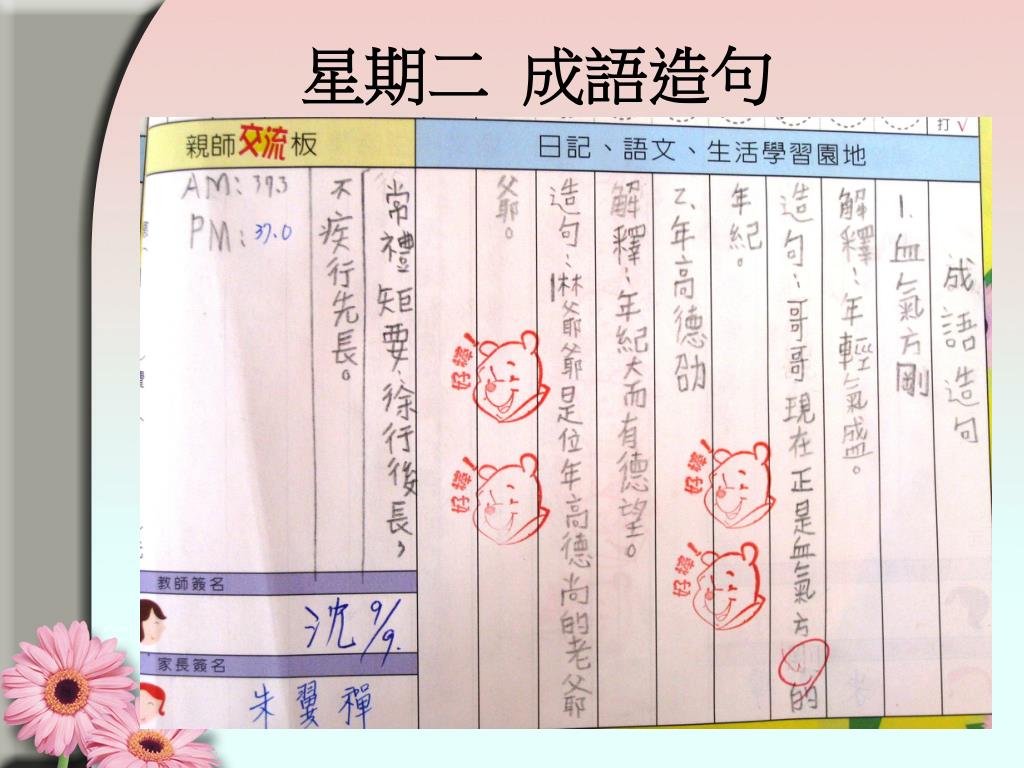 星期二 成語造句
打√
日記、語文、生活學習園地
成語造句
1.血氣方剛
解釋：年輕氣盛。
造句：哥哥現在正是血氣方剛的
年紀。
2.年高德劭
解釋：年紀大而有德望。
造句：林爺爺是位年高德尚的老爺
爺。
好棒!
好棒!
好棒!
好棒!
親師交流板
常禮矩要，徐行後長，
不疾行先長。
AM：37.3
PM：37.0
教師簽名
沈 9/9.
家長簽名